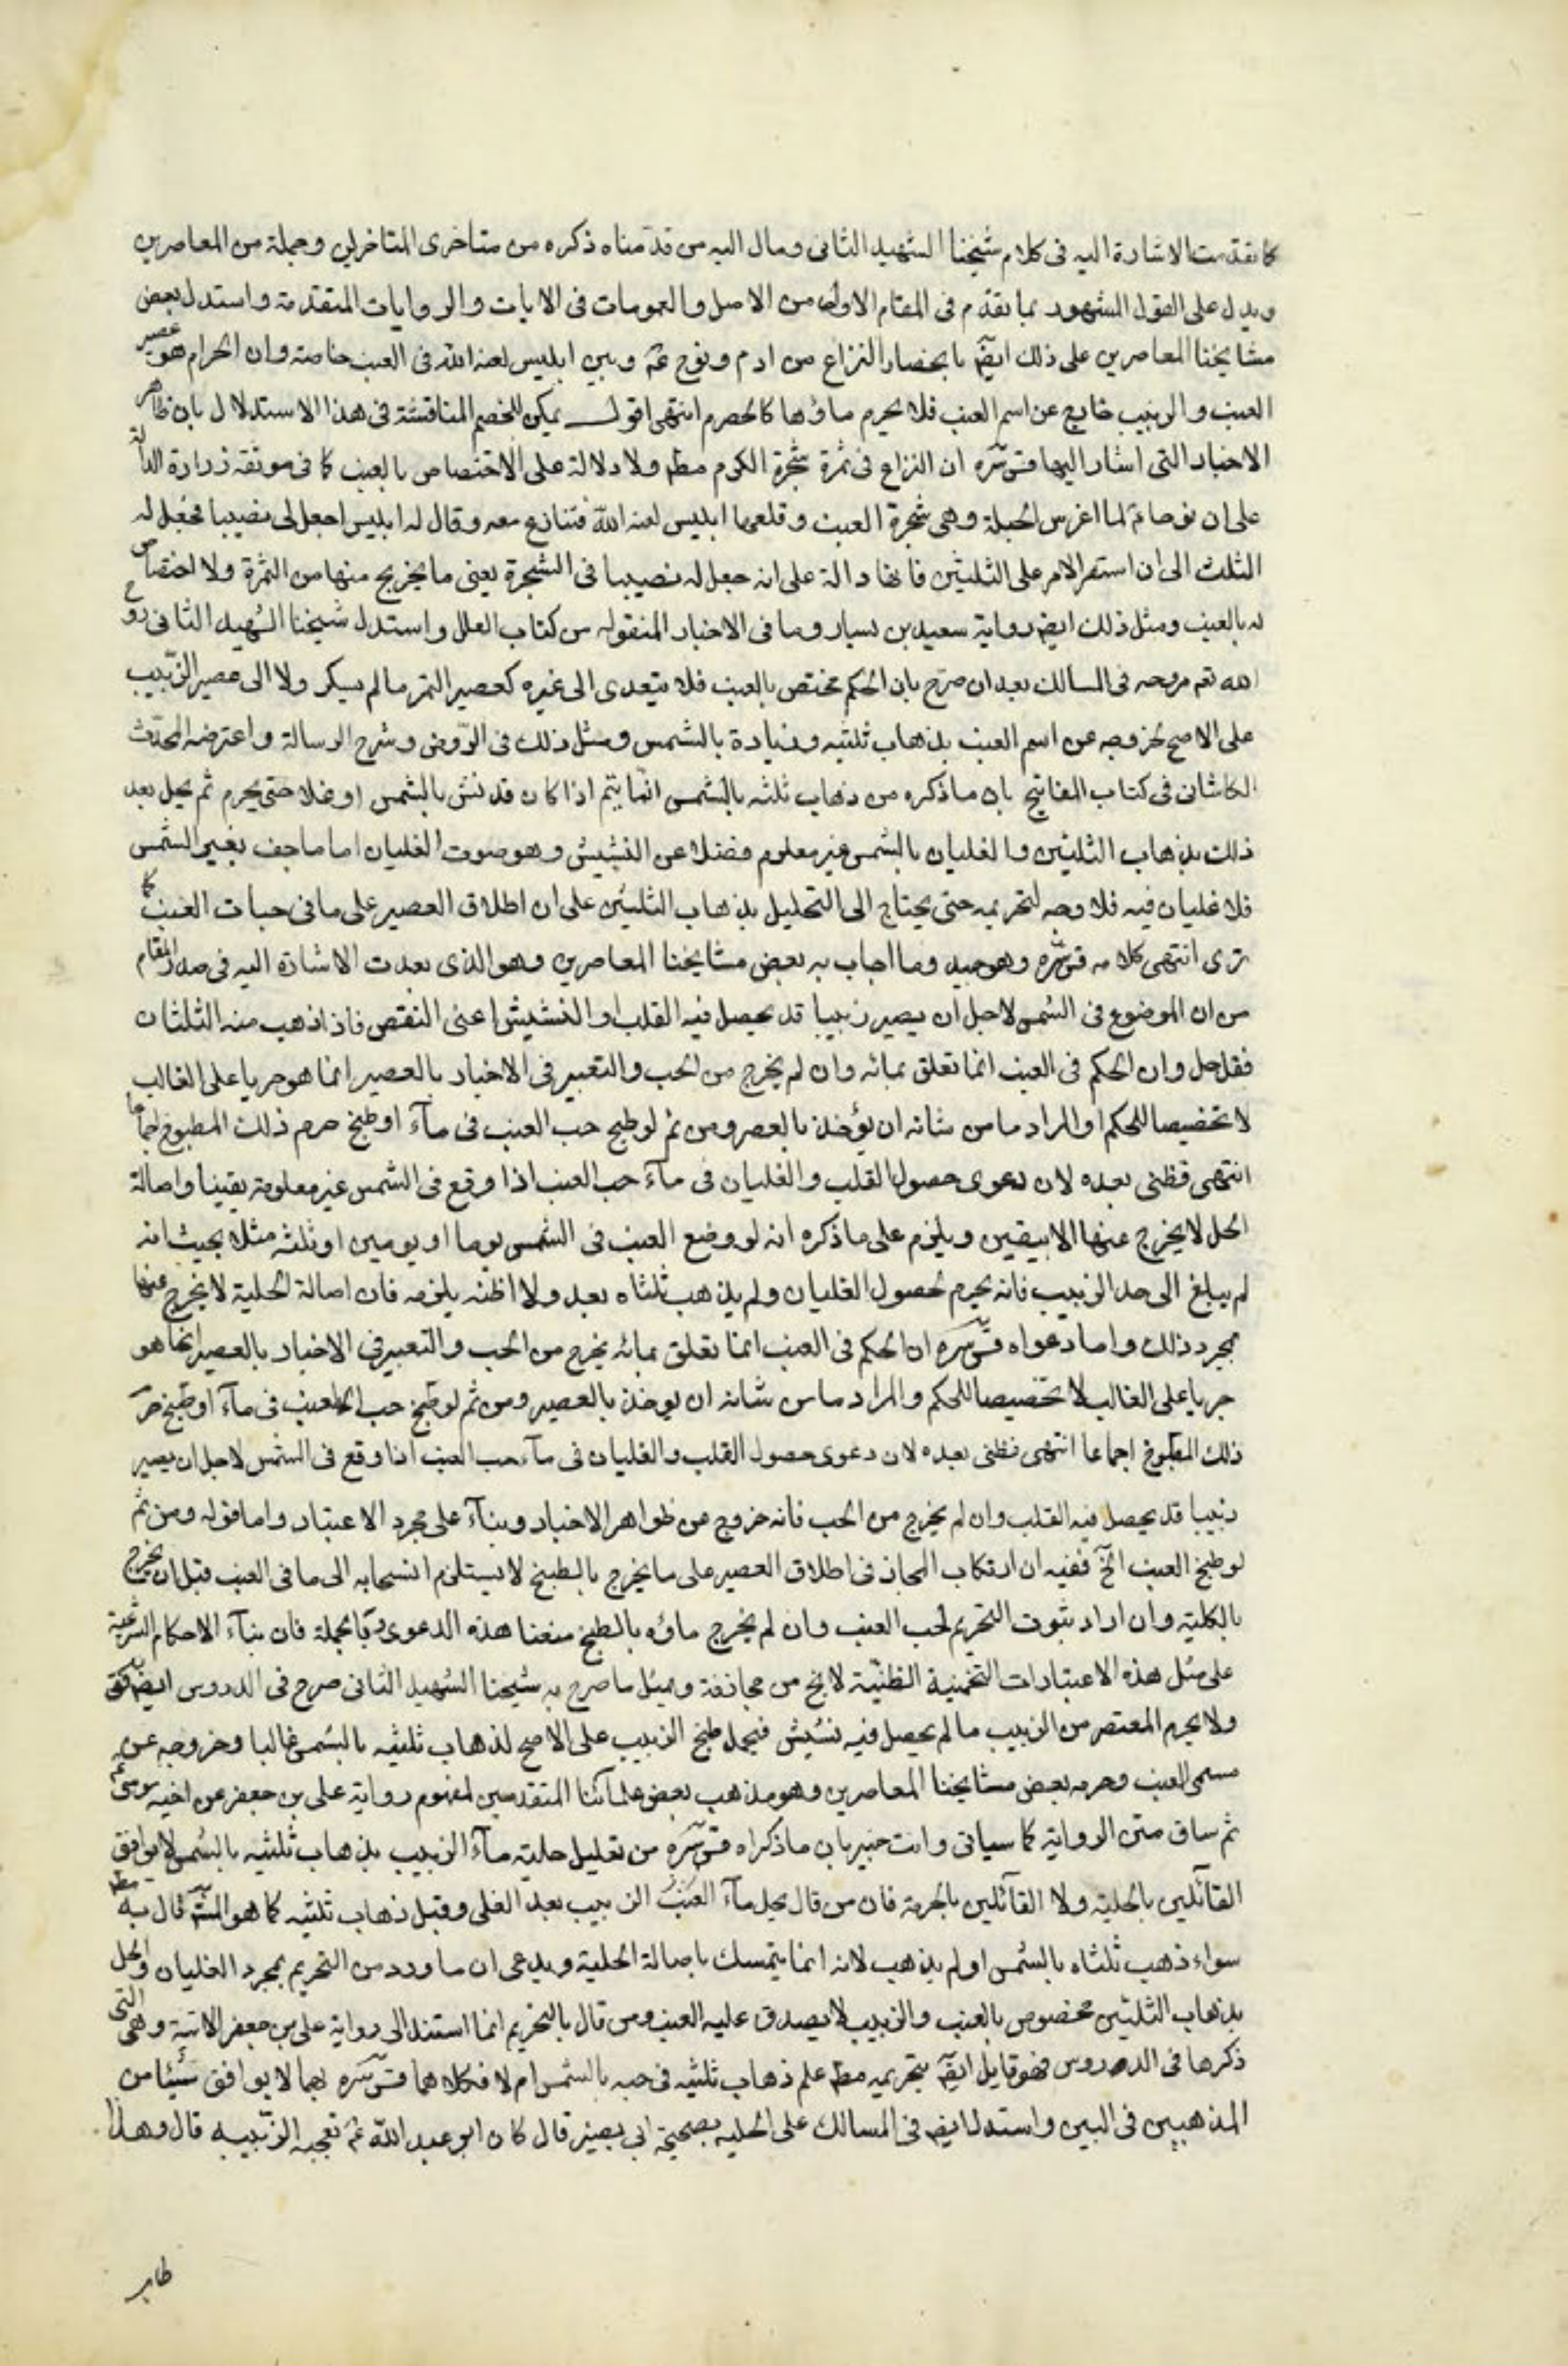 كما تقدمت الاشارة اليه فى كلام شيخنا الشهيد الثانى ومال اليه من قدمناه ذكره من متاخرى المتاخرين وجملة من المعاصرين
ويدل على القول المشهور بما تقدم فى المقام الاول من الاصل والعمومات فى الايات والروايات المتقدمة واستدل بعض
مشايخنا المعاصرين على ذلك ايضا بانحصار النزاع من ادم ونوح عم وبين ابليس لعنه الله فى العنب خاصة وان الحرام هو عصير
العنب والزبيب خارج عن اسم العنب فلا يحرم ماؤها كالحصرم انتهى اقول يمكن للخصم المناقشة فى هذا الاستدلال بان ظاهر
الاخبار التى اشار اليها قدس سره ان النزاع فى ثمرة شجرة الكرم مطم ولا دلالة على الاختصاص بالعنب كما فى موثقة زرارة الدالة
على ان نوحا عم لما اغرس الحبلة وهى شجرة العنب وقلعها ابليس لعنه الله فتنازع معه وقال له ابليس اجعل لى نصيبا فجعل له
الثلث الى ان استقر الامر على الثلثين فانها دالة على انه جعل له نصيبا فى الشجرة يعنى ما يخرج منها من الثمرة ولا اختصاص
له بالعنب ومثل ذلك ايضا رواية سعيد بن يسار وما فى الاخبار المنقوله من كتاب العلل واستدل شيخنا الشهيد الثانى روح
الله تعم روحه فى المسالك بعد ان صرح بان الحكم مختص بالعنب فلا يتعدى الى غيره كعصير التمر ما لم يسكر ولا الى عصير الزبيب
على الاصح لخروجه عن اسم العنب بذهاب ثلثيه وزيادة بالشمس ومثل ذلك فى الروض وشرح الرسالة واعترضه المحدث
الكاشانى فى كتاب المفاتيح بان ما ذكره من ذهاب ثلثه بالشمس انما يتم اذا كان قد نش بالشمس او غلا حتى يحرم ثم يحل بعد
ذلك بذهاب الثلثين والغليان بالشمس غير معلوم فضلا عن النشيش وهو صوت الغليان اما ما جف بغير الشمس
فلا غليان فيه فلا وجه لتحريمه حتى يحتاج الى التحليل بذهاب الثلثين على ان اطلاق العصير على ما فى حبات العنب كما
ترى انتهى كلامه قدس سره وهو جيد وما اجاب به بعض مشايخنا المعاصرين وهو الذى بعدت الاشارة اليه فى صدر المقام
من ان الموضوع فى الشمس لاجل ان يصير زبيبا قد يحصل فيه القلب او النشيش اعنى النقص فاذا ذهب منه الثلثان
فقد حل وان الحكم فى العنب انما تعلق بمائه وان لم يخرج من الحب والتعبير فى الاخبار بالعصير انما هو جريا على الغالب
لا تخصيصا للحكم او المراد ما من شانه ان يؤخذ بالعصر ومن ثم لو طبخ حب العنب فى ماء او طبخ حرم ذلك المطبوخ اجماعا
انتهى فظنى بعده لان دعوى حصول القلب والغليان فى ماء حب العنب اذا وقع فى الشمس غير معلومة يقينا واصالة
الحل لا يخرج عنها الا بيقين ويلزم على ما ذكره انه لو وضع العنب فى الشمس يوما او يومين او ثلثه مثلا بحيث انه
لم يبلغ الى حد الزبيب فانه يحرم لحصول الغليان ولم يذهب ثلثاه بعد ولا اظنه يلزمه فان اصالة الحلية لا يخرج عنها
بمجرد ذلك واما دعواه قدس سره ان الحكم فى العنب انما تعلق بمائه يخرج من الحب والتعبير فى الاخبار بالعصير انما هو
جريا على الغالب لا تخصيصا للحكم والمراد ما من شانه ان يوخذ بالعصير ومن ثم لو طبخ حب العنب فى ماء او طبخ حرم
ذلك المطبوخ اجماعا انتهى فظنى بعده لان دعوى حصول القلب والغليان فى ماء حب العنب اذا وقع فى الشمس لاجل ان يصير
زبيبا قد يحصل فيه القلب وان لم يخرج من الحب فانه خروج عن ظواهر الاخبار وبناء على مجرد الاعتبار واما قوله ومن ثم
لو طبخ العنب الخ ففيه ان ارتكاب المجاز فى اطلاق العصير على ما يخرج بالطبخ لا يستلزم انسحابه الى ما فى العنب قبل ان يخرج
بالكلية وان اراد ثبوت التحريم لحب العنب وان لم يخرج ماؤه بالطبخ منعنا هذه الدعوى وبالجملة فان بناء الاحكام الشرعية
على مثل هذه الاعتبارات التخمينية الظنية لا يخ من مجازفة وبمثل ما صرح به شيخنا الشهيد الثانى صرح فى الدروس ايضا
ولا يحرم المعتصر من الزبيب ما لم يحصل فيه نشيش فيحل طبخ الزبيب على الاصح لذهاب ثلثيه بالشمس غالبا وخروجه عن
مسمى العنب وحرمه بعض مشايخنا المعاصرين وهو مذهب بعض علمائنا المتقدمين لمفهوم رواية على بن جعفر عن اخيه موسى عم
ثم ساق متن الرواية كما سياتى وانت خبير بان ما ذكراه قدس سره من تعليل حلية ماء الزبيب بذهاب ثلثيه بالشمس لا يوافق
القائلين بالحلية ولا القائلين بالحرمة فان من قال بحل ماء العنب الزبيب بعد الغلى وقبل ذهاب ثلثيه كما هو المش قال به مطم
سواء ذهب ثلثاه بالشمس او لم يذهب لانه انما يتمسك باصالة الحلية ويدعى ان ما ورد من التحريم بمجرد الغليان والحل
بذهاب الثلثين مخصوص بالعنب والزبيب لا يصدق عليه العنب ومن قال بالتحريم انما استند الى رواية على بن جعفر الاتية وهى التى
ذكرها فى الدروس فهو قايل ايضا بتحريمه مطم علم ذهاب ثلثيه فى حبه بالشمس ام لا فكلاهما قدس سره بهما لا يوافق شيئا من
المذهبين فى البين واستدل ايضا فى المسالك على الحليه بصحيحة ابى بصير قال كان ابو عبد الله عم تعجبه الزبيبه قال وهذا
ظاهر